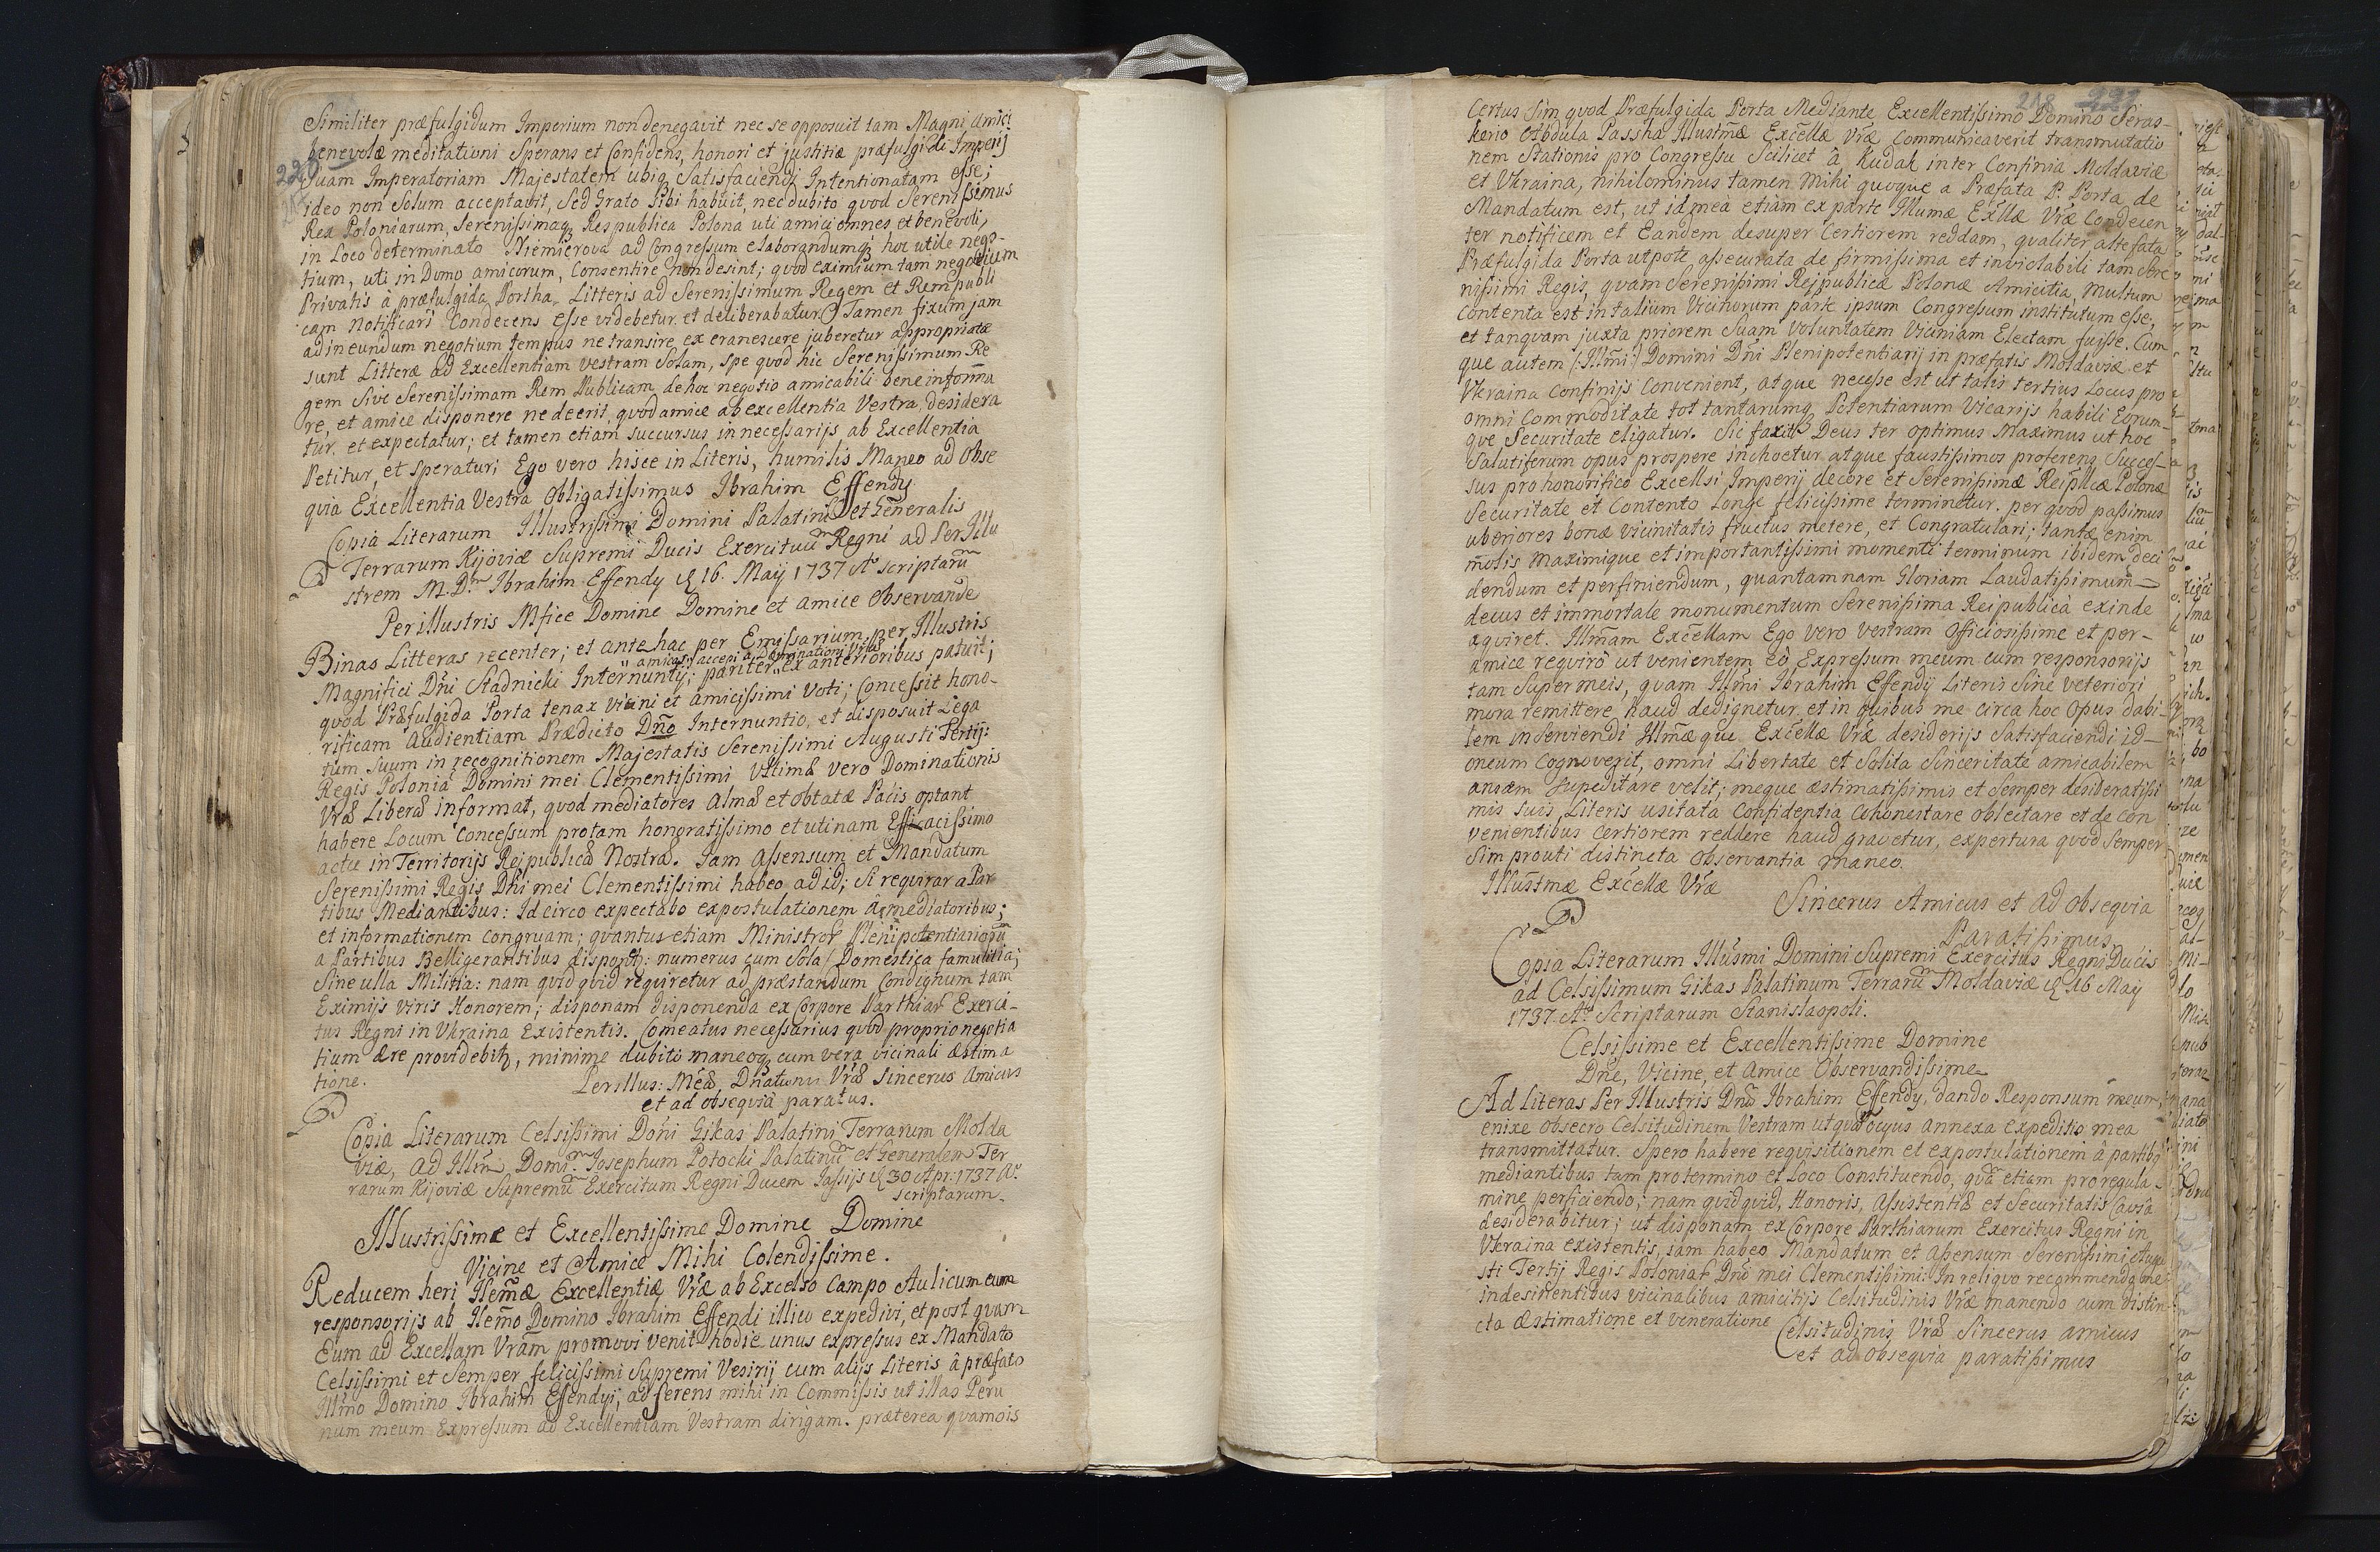 Similiter præfulgidum Imperium non denegavit nec se opposuit tam Magni Amici
benevolæ meditationi Sperans et Confidens, honori et justitiæ præfulgidi Imperij
220
Suam Imperatoriam Majestatem ubiq Satisfaciendi Intentionatam esse;
ideo non Solum acceptavit, Sed Grato Sibi habuit, nec dubito quod Serenissimus
Rex Poloniarum, Serenissimaq Respublica Polona uti amici omnes et benevoli,
in Loco determinato Niemierova ad Congressum elaborandumq hoc utile nego-
tium, uti in Domo amicorum, Consentire non desint; quod eximium tam negotium
Privatis à præfulgida Portha Litteris ad Serenissimum Regem et Rempubli
cam Notificari Condecens esse videbetur et deliberabatur Tamen fixum jam
ad ineundum negotium tempus ne transire ex eranescere juberetur appropriatæ
sunt Litteræ ad Excellentiam vestram Solam, spe quod hic Serenissimum Re
gem Sive Serenissimam Rem Publicam de hoc negotio amicabili bene informa
re, et amice disponere ne deerit, quod amice ab excellentia Vestra desidera
tur et expectatur; et tamen etiam succursus in necessarijs ab Excellentia
Petitur, et speratur; Ego vero hisce in Literis, humilis Maneo ad Obse
quia Excellentia Vestra Obligatissimus Ibrahim Effendy
Copia Literarum Illustrissimi Domini Palatini et Generalis
Terrarum Kijoviæ Supremi Ducis Exercituũ Regni ad Per Illu
strem M. D. Ibrahim Effendy 16. Maij 1737 Aº scriptarũ
Per illustris Mfice Domine Domine et Amice Observande
Binas Litteras recenter; et ante hac per Emissarium per Illustris
amicas accepi a Dominationi Vræ
Magnifici Dñi Stadnicki Internuntij; pariter ex anterioribus patuit;
quod Præfulgida Porta tenax vicini et amicissimi Voti; Concessit hono-
rificam Audientiam Prædicto Dño Internuntio, et disposuit Lega
tum Suum in recognitionem Majestatis Serenissimi Augusti Tertij:
Regis Poloniæ Domini mei Clementissimi Vltimæ vero Dominationis
Vræ Liberæ informat, quod mediatores Almæ et obtatæ Pacis optant
habere Locum Concessum pro tam honoratissimo et utinam Efficacissimo
actu in Territorijs Reipublicæ Nostræ. Jam Assensum et Mandatum
Serenissimi Regis Dñi mei Clementissimi habeo ad id; Si requirar a Par
tibus Mediantibus: Idcirco expectabo expostulationem à mediatoribus;
et informationem congruam; quantus etiam Ministror Plenipotentiariorũ
a Partibus Belligerantibus disponitz: numerus cum Sola Domestica famulitia;
Sine ulla Militia: nam quidquid requiretur ad præstandum Condignum tam
Eximijs Viris Honorem; disponam disponenda ex Corpore Parthiar Exerci-
tus Regni in Ukraina Existentis. Comeatus necessarius quod proprio negotia
tium ære providebitz, minime dubito maneoq cum vera vicinali æstima
tione. Perillus: Mcæ Dñationis Vræ Sincerus Amicus
et ad obsequia paratus.
Copia Literarum Celsissimi Doñi Gikas Palatini Terrarum Molda
viæ, ad Illm Domi. Josephum Potocki Palatinũ et Generalem Ter
rarum Kijoviæ Supremũ Exercitum Regni Ducem Jassijs 30 Apr: 1737 Aº
scriptarum.
Illustrissime et Excellentissime Domine Domine
Vicine et Amice Mihi Colendissime.
Reducem heri Illemæ Excellentiæ Vræ ab Excelso Campo Aulicum cum
responsorijs ab Illemo Domino Ibrahim Effendi illico expedivi, et post quam
Eum ad Excellam Vram promovi venit hodie unus expressus ex Mandato
Celsissimi et Semper felicissimi Supremi Vesirij cum alijs Literis â præfato
Illmo Domino Ibrahim Effendyi, adferens mihi in Commissis ut illas Peru
num meum Expressum ad Excellentiam Vestram dirigam. præterea quamois
218 222
Certus Sim quod Præfulgida Porta Mediante Excellentissimo Domino Seras-
kerio Abdula Passha Illustmæ Excellæ Vræ Communicaverit transmutatio
nem Stationis pro Congressu Scilicet à Kudak inter Confinia Moldaviæ
et Vkraina, nihilominus tamen Mihi quoque a Præfata P. Porta de
Mandatum est, ut id mea etiam ex parte Illumæ Exllæ Vræ Condecen
ter notificem et Eandem desuper Certiorem reddam, qualiter alte fata
Præfulgida Porta utpote assecurata de firmissima et inviolabili tam Sere
nissimi Regis, quam Serenissimi Rejpublicæ Polonæ Amicitia, Multum
Contenta est in talium Vicinorum parte ipsum Congressum institutum esse,
et tanquam juxta priorem Suam Voluntatem Viciniam Electam fuisse. Cum
que autem (:Illmi:) Domini Dñi Plenipotentiarij in præfatis Moldaviæ et
Vkraina Confinijs Convenient, atque necesse est ut talis tertius Locus pro
omni Commoditate tot tantarumq Potentiarum Vicarijs habili Eorum-
que Securitate eligatur. Sic faxit Deus ter optimus Maximus ut hoc
Salutiferum opus prospere inchoetur atque faustissimos proferens Succes-
sus pro honorifico Excelsi Imperij decore et Serenissimæ Reiplicæ Polonæ
Securitate et Contento Longe felicissime terminetur. per quod possimus
uberiores bonæ vicinitatis fructus metere, et Congratulari; tantæ enim
molis maximique et importantissimi momenti terminum ibidem deci
dendum et perfiniendum, quantam nam Gloriam Laudatissimum
decus et immortale monumentum Serenissima Reipublica exinde
aquiret. Illmam Excellam Ego vero vestram Officiosissime et per-
amice requiro ut venientem eo Expressum meum cum responsorijs
tam Super meis, quam Illmi Ibrahim Effendij Literis Sine veteriori
mora remittere haud dedignetur et in quibus me circa hoc Opus dabi-
tem inserviendi Illmæque Excellæ Vræ desiderijs Satisfaciendi id-
oneum Cognoverit, omni Libertate et Solita Sinceritate amicabilem
ansæm Supeditare velit; meque æstimatissimis et Semper desideratissi
mis suis Literis usitata Confidentia Cohonestare oblectare et de con
venientibus Certiorem reddere haud gravetur, expertura quod Semper
Sim prouti distincta Observantia maneo.
Illustmæ Excellæ Vræ
Sincerus Amicus et Ad Obsequia
Paratissimus
Copia Literarum Illusmi Domini Supremi Exercitus Regni Ducis
ad Celsissimum Gikas Palatinum Terrarũ Moldaviæ 16 May
1737. Aº Scriptarum Stanislaopoli.
Celsissime et Excellentissime Domine
Dñe, Vicine, et Amice Observandissime
Ad Literas Per Illustris Dño Ibrahim Effendy, dando Responsum meum,
enixe obsecro Celsitudinem Vestram ut quo ocyus annexa expeditio mea
transmittatur. Spero habere requisitionem et expostulationem â partibz
mediantibus tam pro termino et Loco Constituendo, quã etiam pro regula-
mine perficiendo; nam quidquid, Honoris, Assistentiæ et Securitatis Causa
desiderabitur; ut disponam ex Corpore Parthiarum Exercitus Regni in
Vkraina existentis, Jam habeo Mandatum et Assensum Serenissimi Augu
sti Tertij Regis Poloniar Dñi mei Clementissimi: In reliquo recommendo me
indesinentibus vicinalibus amicitijs Celsitudinis Vræ manendo cum distin-
cta Æstimatione et veneratione Celsitudinis Vræ Sincerus amicus
et ad obsequia paratissimus